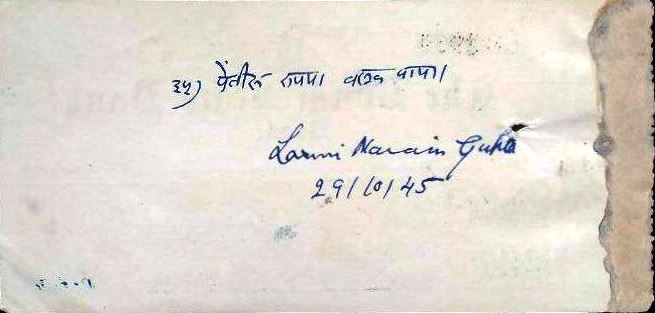 ३५) पैंतीस रुपया नगद पाया।
Laxmi Narain Gupta
29/10/45